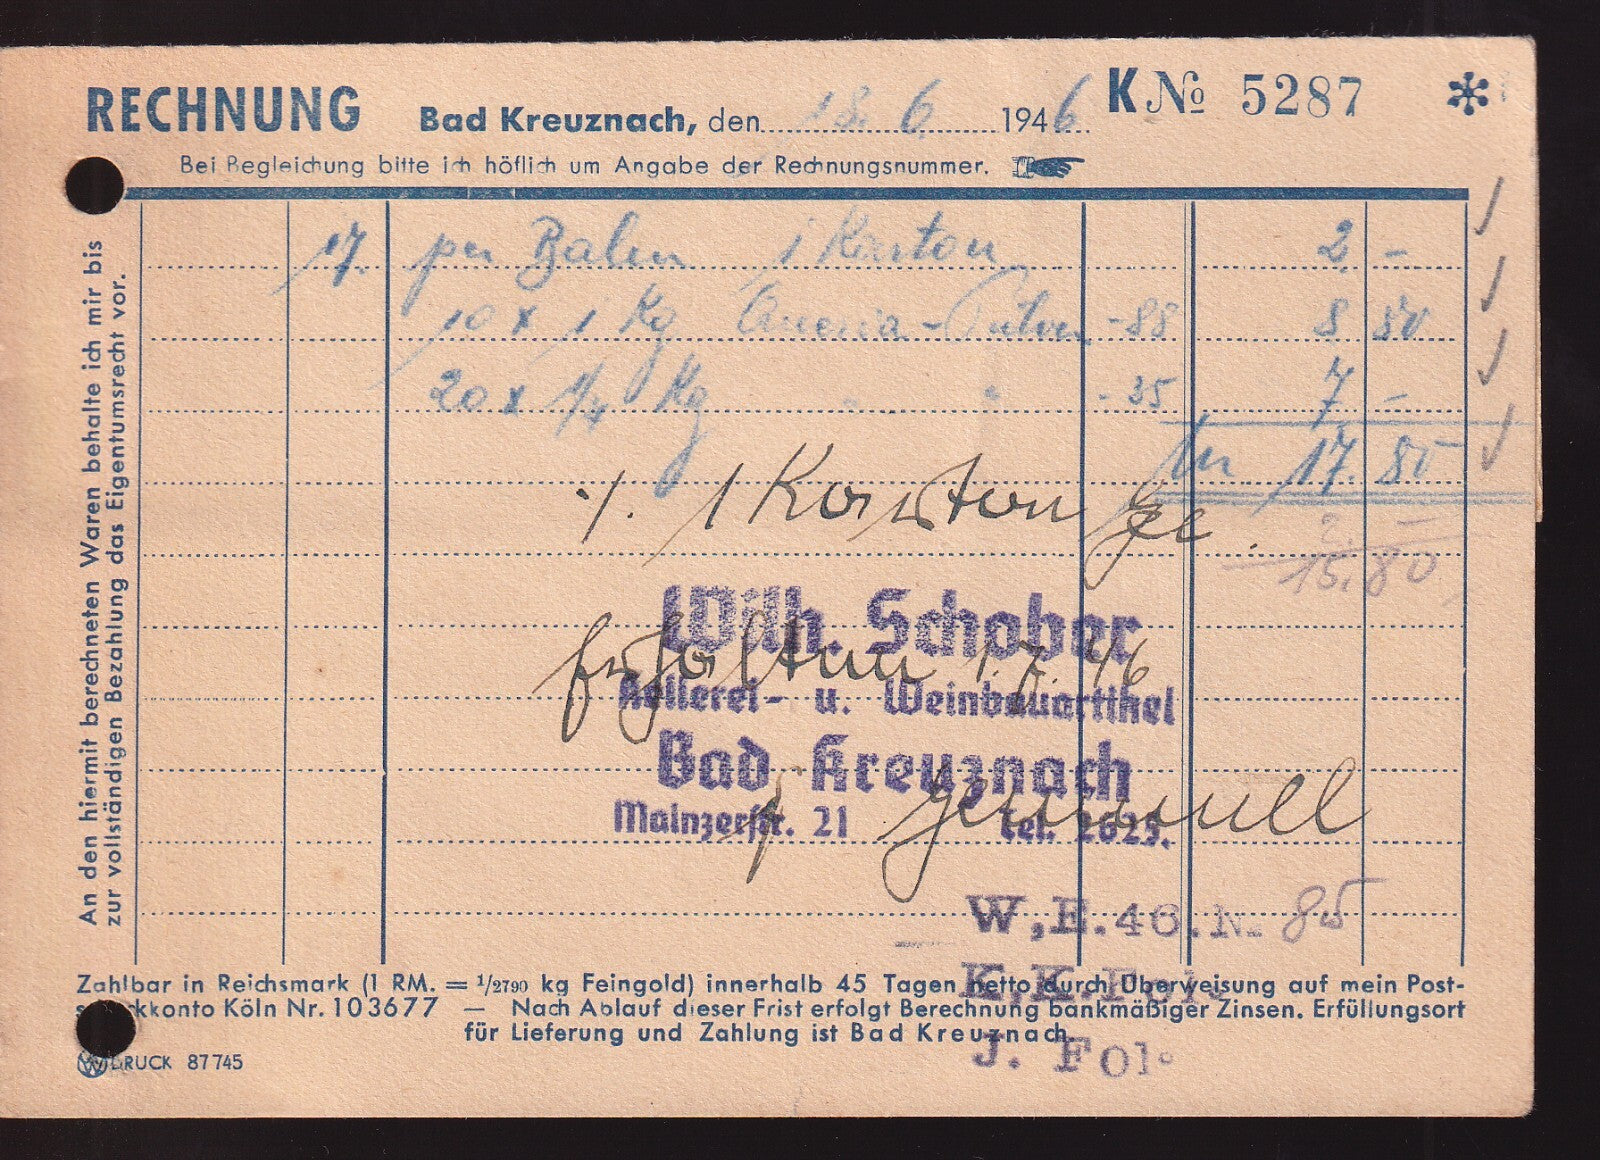 RECHNUNG Bad Kreuznach, den 18. 6. 1946 K No 5287
Bei Begleichung bitte ich höflich um Angabe der Rechnungsnummer.
An den hiermit berechneten Waren behalte ich mir bis
zur vollständigen Bezahlung das Eigentumsrecht vor.
17. per 1 Karton 2.-
10 x 1 Kg -88 8 80
20 x 1/4 Kg " " -35 7 -
17.80
·/. 1 Karton 2. -
15.80
Wilh. Schober
erhalten 1.7.46
Kellerei- u. Weinbauartikel
Bad Kreuznach
Mainzerstr. 21 Tel. 2625.
W.E.46.N. 85
K.K.Fol.
J. Fol.
Zahlbar in Reichsmark (1 RM. = 1/2790 kg Feingold) innerhalb 45 Tagen netto durch Überweisung auf mein Post-
scheckkonto Köln Nr. 103677 — Nach Ablauf dieser Frist erfolgt Berechnung bankmäßiger Zinsen. Erfüllungsort
für Lieferung und Zahlung ist Bad Kreuznach.
DRUCK 87745